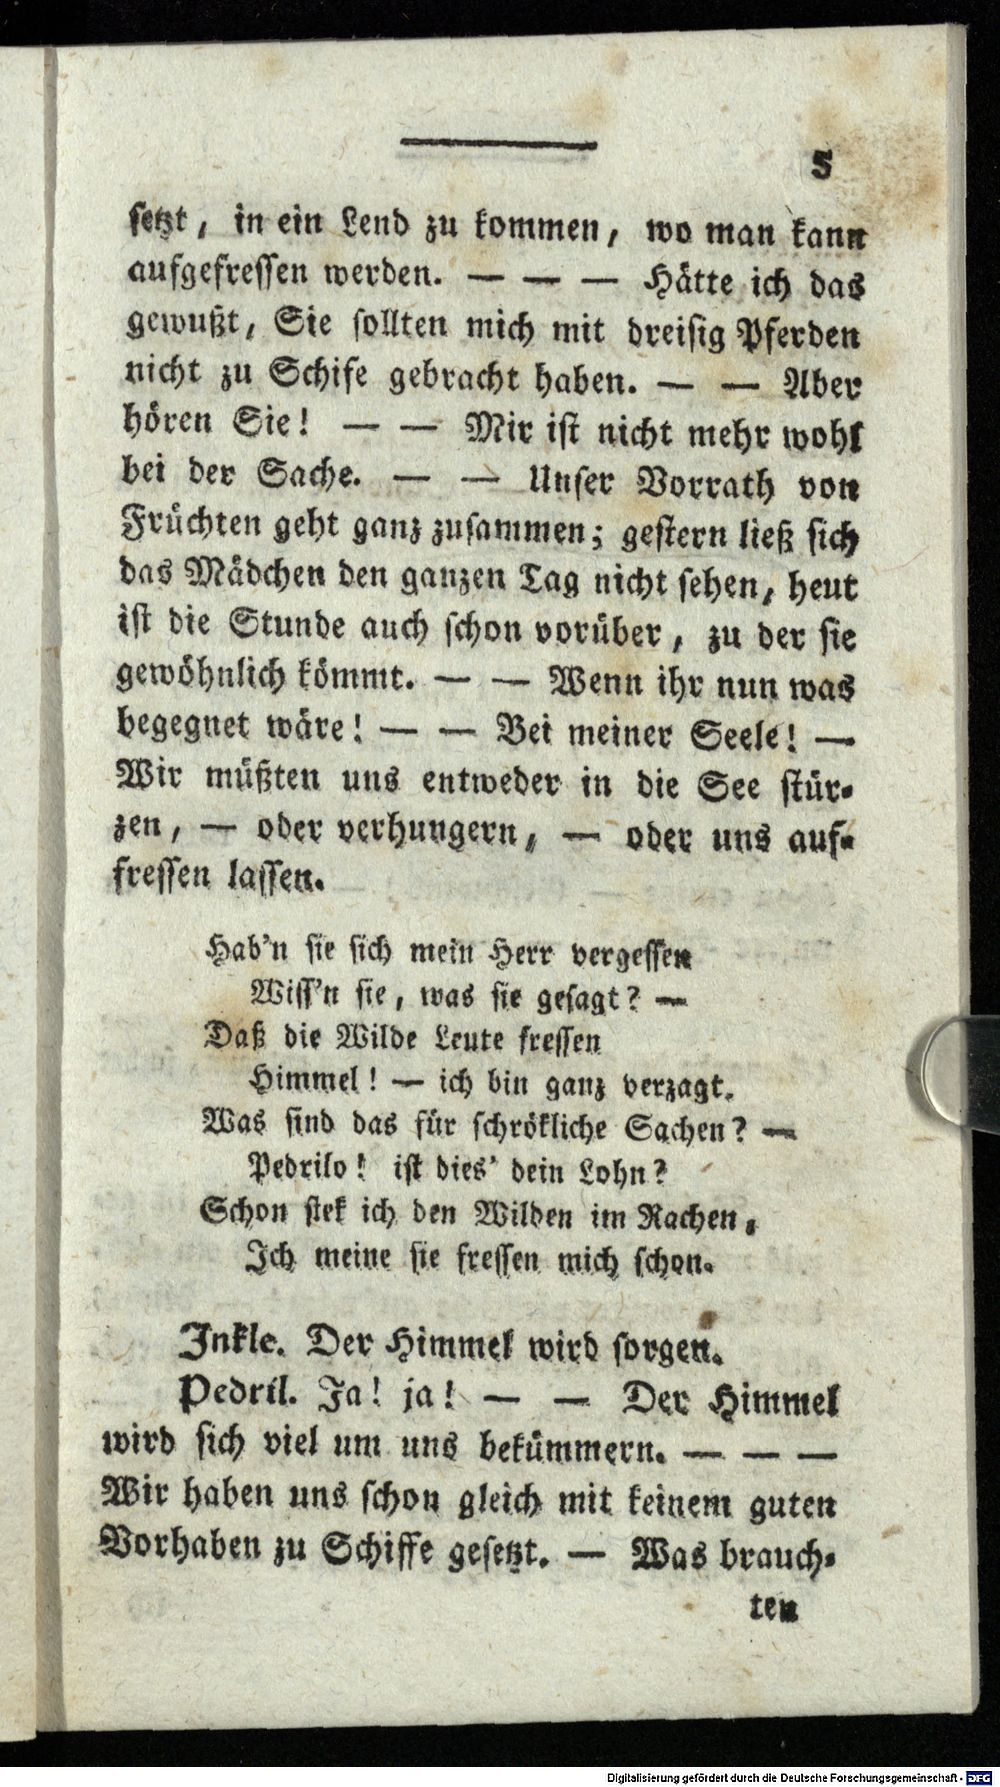 5
setzt, in ein Lend zu kommen, wo man kann
aufgefressen werden. — — — Hätte ich das
gewußt, Sie sollten mich mit dreisig Pferden
nicht zu Schife gebracht haben. — — Aber
hören Sie! — — Mir ist nicht mehr wohl
bei der Sache. — — Unser Vorrath von
Früchten geht ganz zusammen; gestern ließ sich
das Mädchen den ganzen Tag nicht sehen, heut
ist die Stunde auch schon vorüber, zu der sie
gewöhnlich kömmt. — — Wenn ihr nun was
begegnet wäre! — — Bei meiner Seele! —
Wir müßten uns entweder in die See stür-
zen, — oder verhungern, — oder uns auf-
fressen lassen.
Hab'n sie sich mein Herr vergessen
Wiss'n sie, was sie gesagt? —
Daß die Wilde Leute fressen
Himmel! — ich bin ganz verzagt.
Was sind das für schrökliche Sachen? —
Pedrilo! ist dies' dein Lohn?
Schon stek ich den Wilden im Rachen,
Ich meine sie fressen mich schon.
Inkle. Der Himmel wird sorgen.
Pedril. Ja! ja! — — Der Himmel
wird sich viel um uns bekümmern. — — —
Wir haben uns schon gleich mit keinem guten
Vorhaben zu Schiffe gesetzt. — Was brauch-
ten
Digitalisierung gefördert durch die Deutsche Forschungsgemeinschaft - DFG